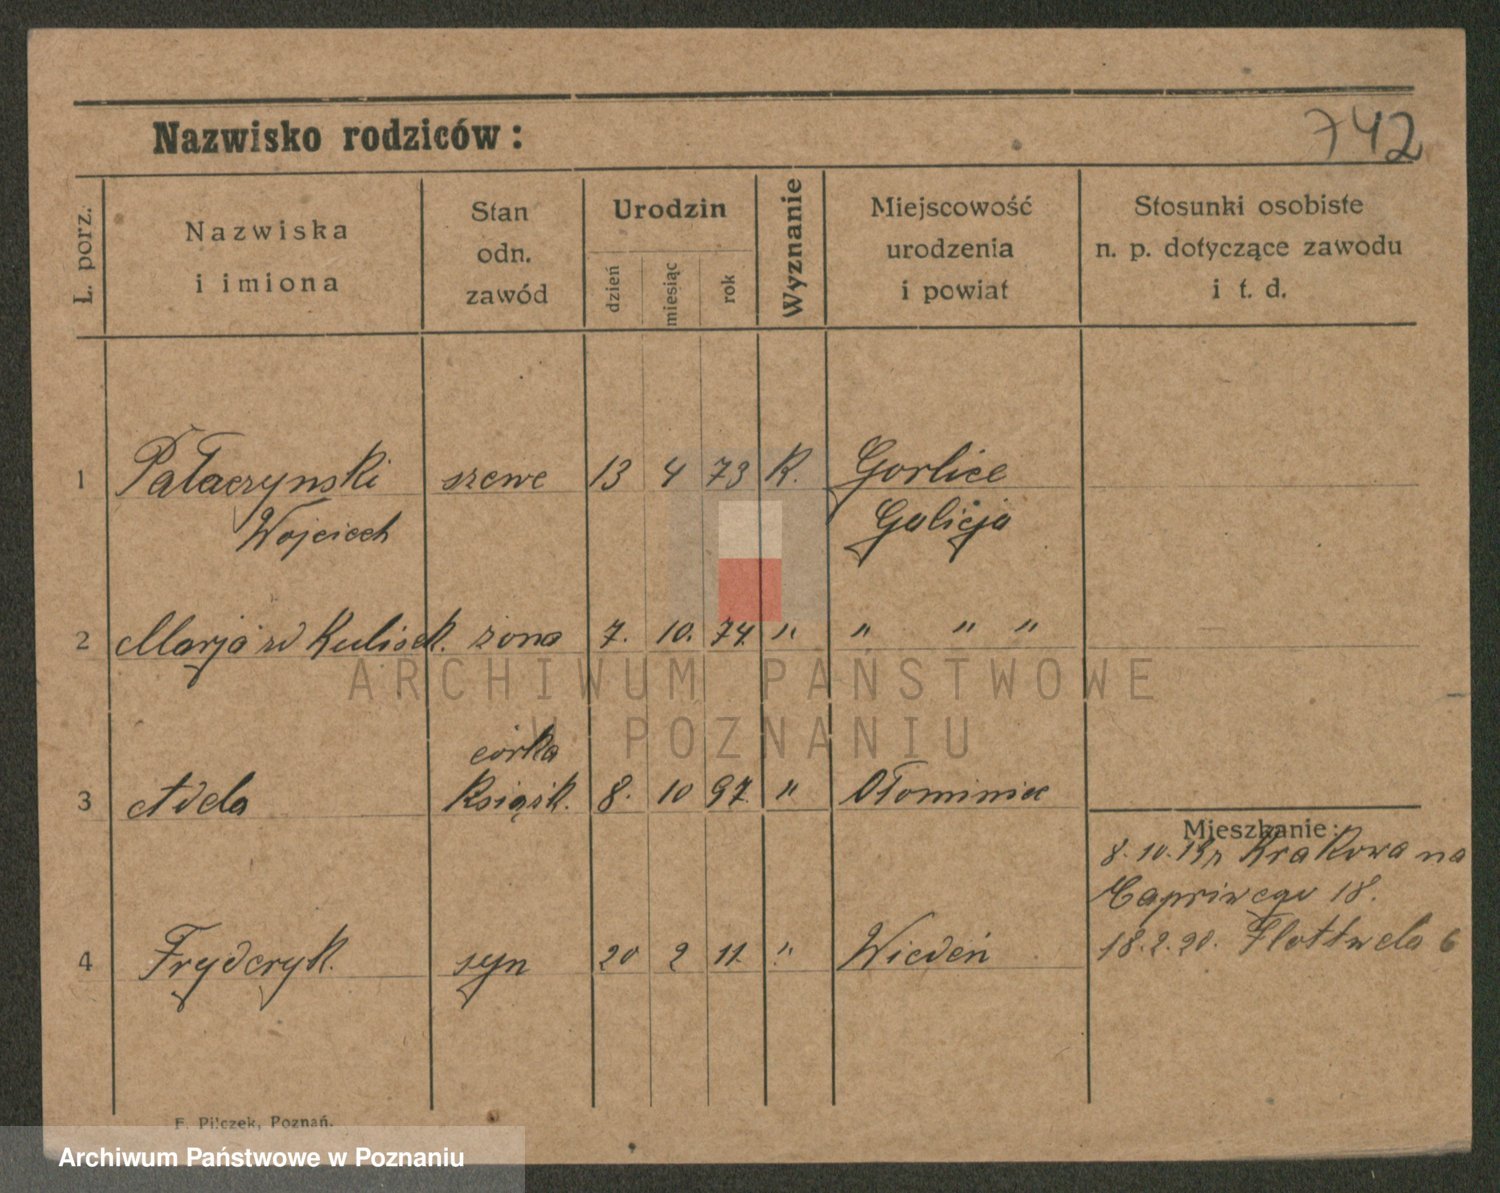 Nazwisko rodziców:
742
L. porz.
Nazwiska
i imiona
Stan
odn.
zawód
Urodzin
dzień
miesiąc
rok
Wyznanie
Miejscowość
urodzenia
i powiat
Stosunki osobiste
n. p. dotyczące zawodu
i t. d.
1 Pałaczynski szewc 13 4 73 K. Gorlice
Wojciech Galicja
2 Marja zd Kulisek. żona 7. 10. 74. " " " "
córka
3 Adela Książk. 8. 10 97. " Ołominiec
Mieszkanie:
8.10.19 z Krakowa na
Capriwego 18.
18.2.20. Flottwela 6
4 Fryderyk. syn 20 2 11. " Wiedeń
F. Pilczek, Poznań.
ARCHIWUM PAŃSTWOWE
W POZNANIU
Archiwum Państwowe w Poznaniu